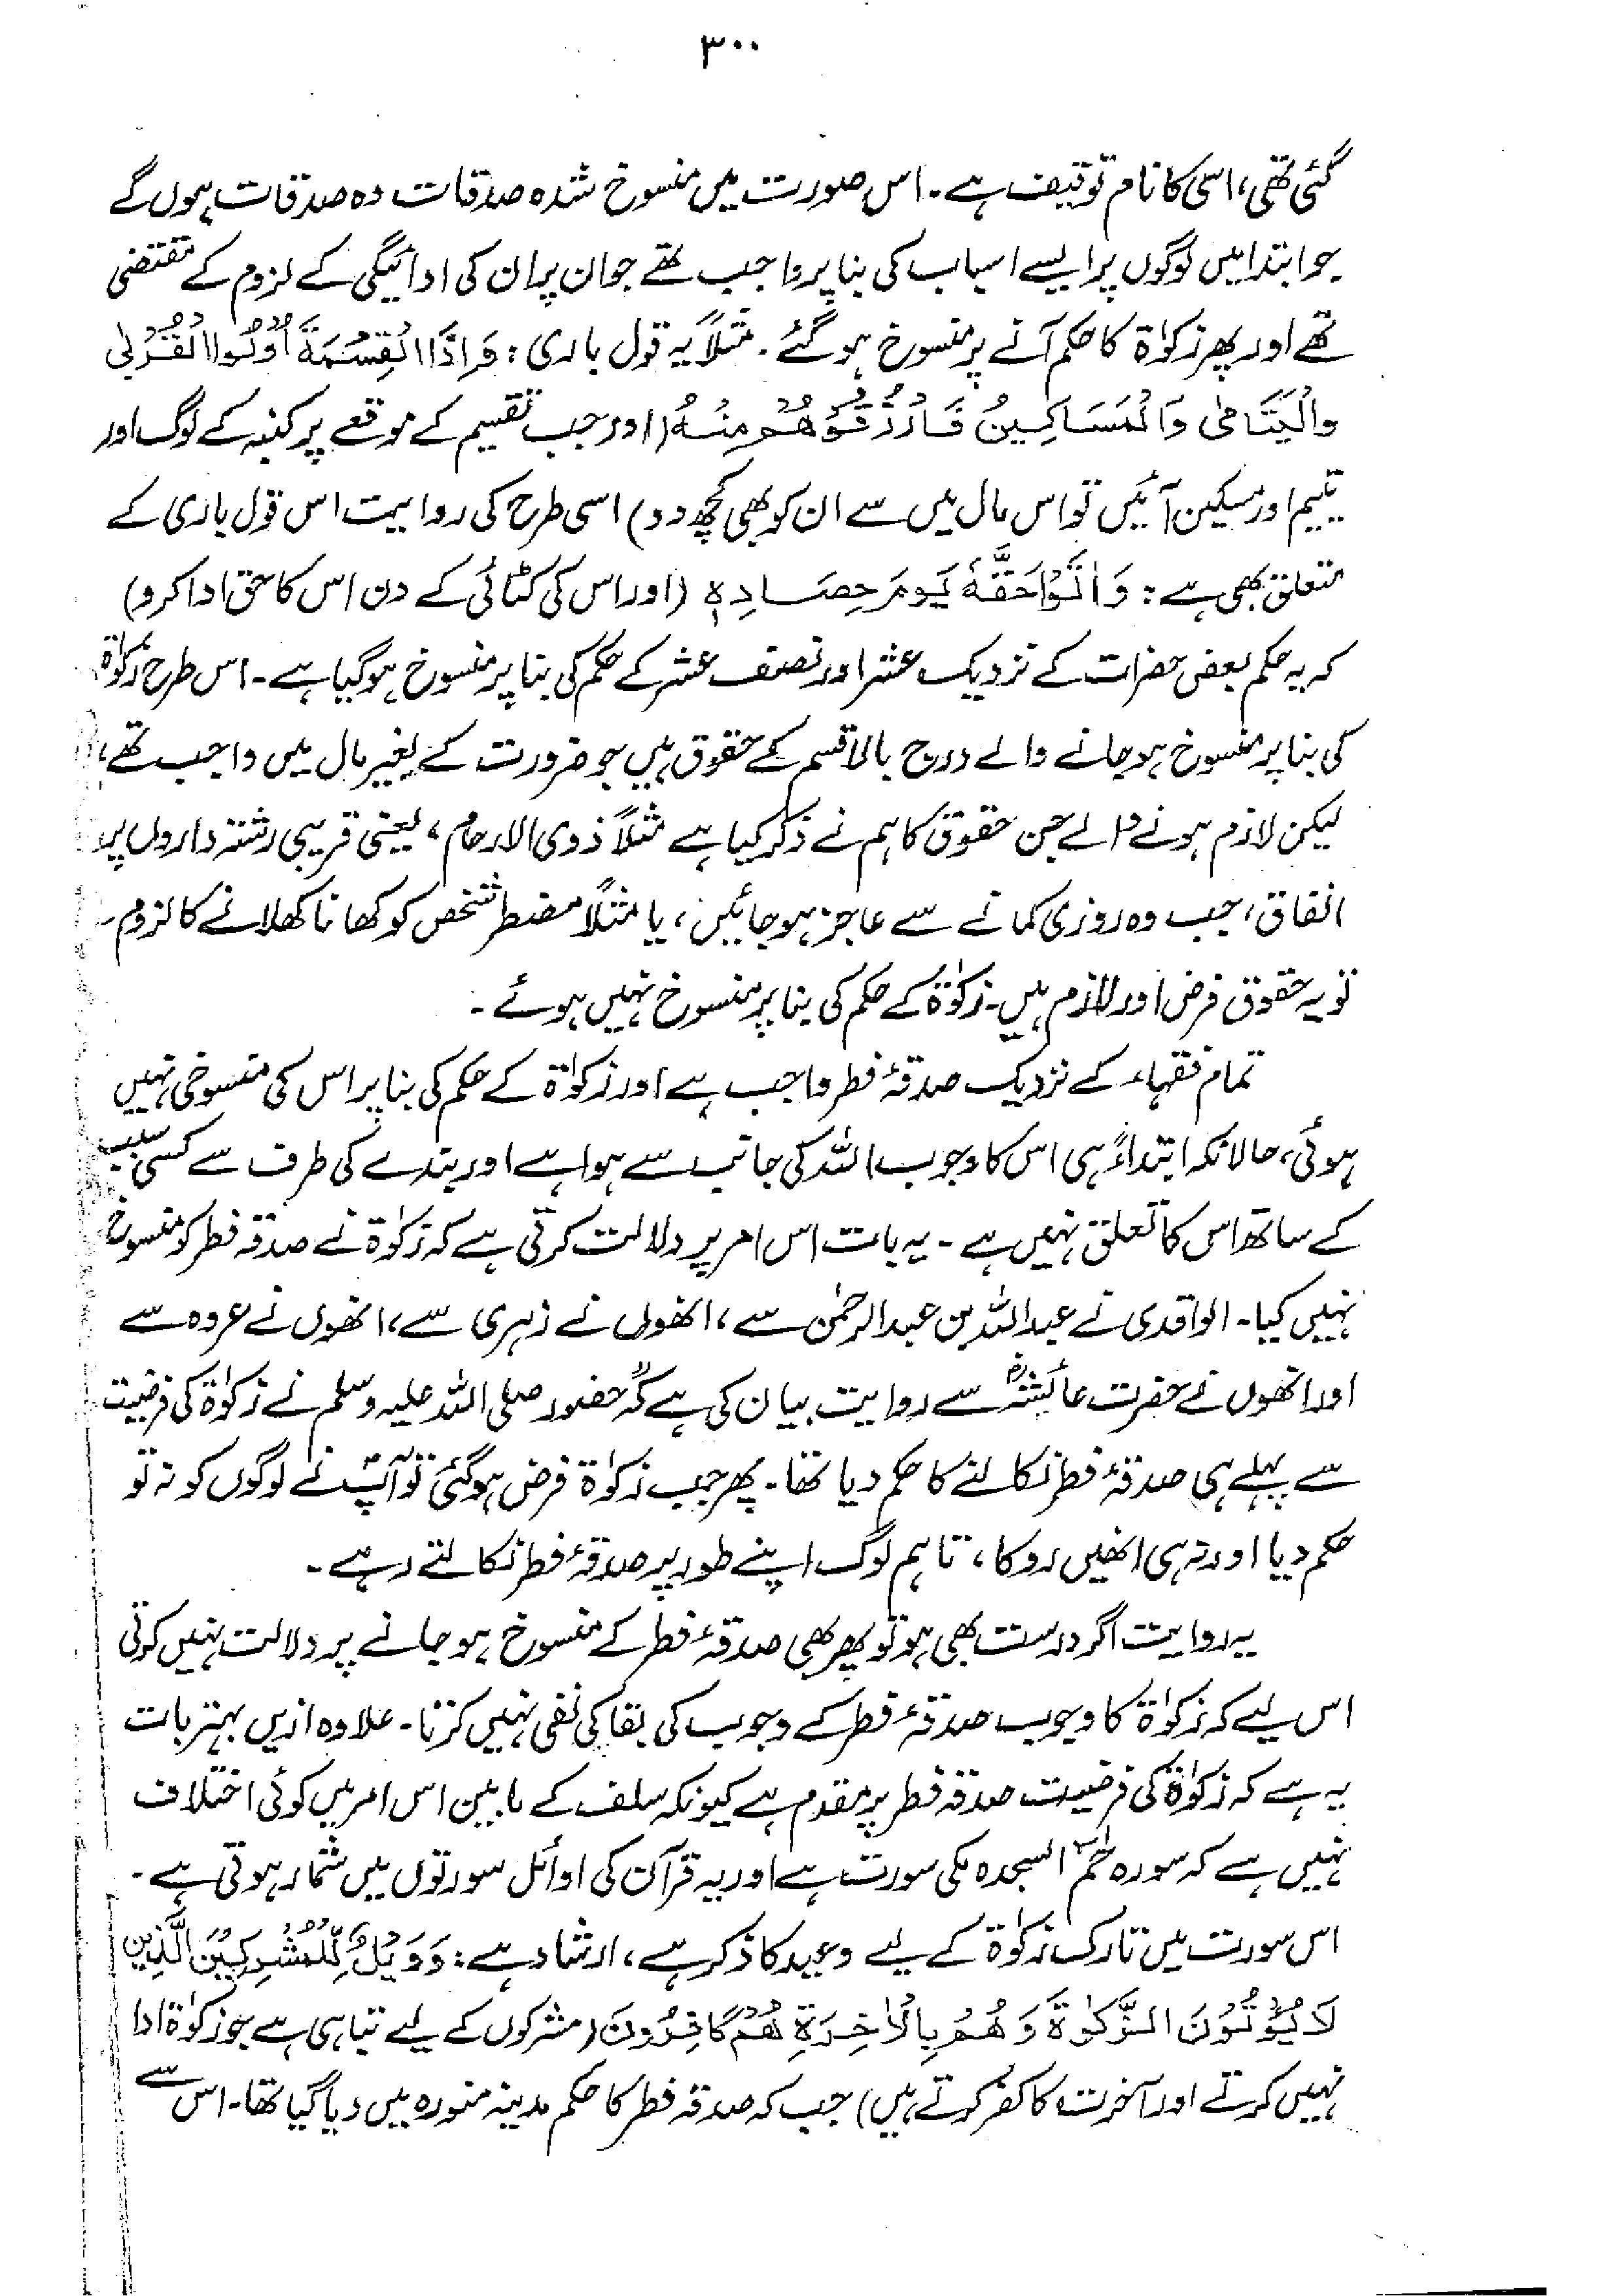 ۳۰۰
گئی تھی، اسی کا نام توقیف ہے۔ اس صورت میں منسوخ شدہ صدقات وہ صدقات ہوں گے
جو ابتدا میں لوگوں پر ایسے اسباب کی بنا پر واجب تھے جو ان پر ان کی ادائیگی کے لزوم کے مقتضی
تھے اور پھر زکوٰۃ کا حکم آنے پر منسوخ ہو گئے۔ مثلاً یہ قول باری: وَاِذَا الْقِسْمَةَ اُولُوا الْقُرْبٰی
وَالْیَتَامٰی وَالْمَسَاکِیْنُ فَارْزُقُوْهُمْ مِنْهُ (اور جب تقسیم کے موقعے پر کنبہ کے لوگ اور
یتیم اور مسکین آئیں تو اس مال میں سے ان کو بھی کچھ دو) اسی طرح کی روایت اس قول باری کے
متعلق بھی ہے: وَاٰتُوْا حَقَّهٗ یَومَ حِصَادِهٖ (اور اس کی کٹائی کے دن اس کا حق ادا کرو)
کہ یہ حکم بعض حضرات کے نزدیک عشر اور نصف عشر کے حکم کی بنا پر منسوخ ہو گیا ہے۔ اس طرح زکوٰۃ
کی بنا پر منسوخ ہو جانے والے درج بالا قسم کے حقوق ہیں جو ضرورت کے بغیر مال میں واجب تھے،
لیکن لازم ہونے والے جن حقوق کا ہم نے ذکر کیا ہے مثلاً ذوی الارحام، یعنی قریبی رشتہ داروں پر
انفاق، جب وہ روزی کمانے سے عاجز ہو جائیں، یا مثلاً مضطر شخص کو کھانا کھلانے کا لزوم۔
تو یہ حقوق فرض اور لازم ہیں۔ زکوٰۃ کے حکم کی بنا پر منسوخ نہیں ہوئے۔
تمام فقہاء کے نزدیک صدقۂ فطر واجب ہے اور زکوٰۃ کے حکم کی بنا پر اس کی منسوخی نہیں
ہوئی، حالانکہ ابتداءً ہی اس کا وجوب اللہ کی جانب سے ہوا ہے اور بندے کی طرف سے کسی سبب
کے ساتھ اس کا تعلق نہیں ہے۔ یہ بات اس امر پر دلالت کرتی ہے کہ زکوٰۃ نے صدقہ فطر کو منسوخ
نہیں کیا۔ الواقدی نے عبداللہ بن عبدالرحمٰن سے، انھوں نے زہری سے، انھوں نے عروہ سے
اور انھوں نے حضرت عائشہؓ سے روایت بیان کی ہے کہ "حضور صلی اللہ علیہ وسلم نے زکوٰۃ کی فرضیت
سے پہلے ہی صدقۂ فطر نکالنے کا حکم دیا تھا۔ پھر جب زکوٰۃ فرض ہو گئی تو آپؐ نے لوگوں کو نہ تو
حکم دیا اور نہ ہی انھیں روکا، تاہم لوگ اپنے طور پر صدقۂ فطر نکالتے رہے۔
یہ روایت اگر درست بھی ہو تو پھر بھی صدقۂ فطر کے منسوخ ہو جانے پر دلالت نہیں کرتی
اس لیے کہ زکوٰۃ کا وجوب صدقۂ فطر کے وجوب کی بقا کی نفی نہیں کرتا۔ علاوہ ازیں بہتر بات
یہ ہے کہ زکوٰۃ کی فرضیت صدقہ فطر پر مقدم ہے کیونکہ سلف کے مابین اس امر میں کوئی اختلاف
نہیں ہے کہ سورہ حٰمٓ السجدہ مکی سورت ہے اور یہ قرآن کی اوائل سورتوں میں شمار ہوتی ہے۔
اس سورت میں تارک زکوٰۃ کے لیے وعید کا ذکر ہے، ارشاد ہے: وَوَیْلٌ لِّلْمُشْرِکِیْنَ الَّذِیْنَ
لَا یُؤْتُوْنَ الزَّکٰوةَ وَهُمْ بِالْاٰخِرَةِ هُمْ کَافِرُوْنَ (مشرکوں کے لیے تباہی ہے جو زکوٰۃ ادا
نہیں کرتے اور آخرت کا کفر کرتے ہیں) جب کہ صدقہ فطر کا حکم مدینہ منورہ میں دیا گیا تھا۔ اس سے